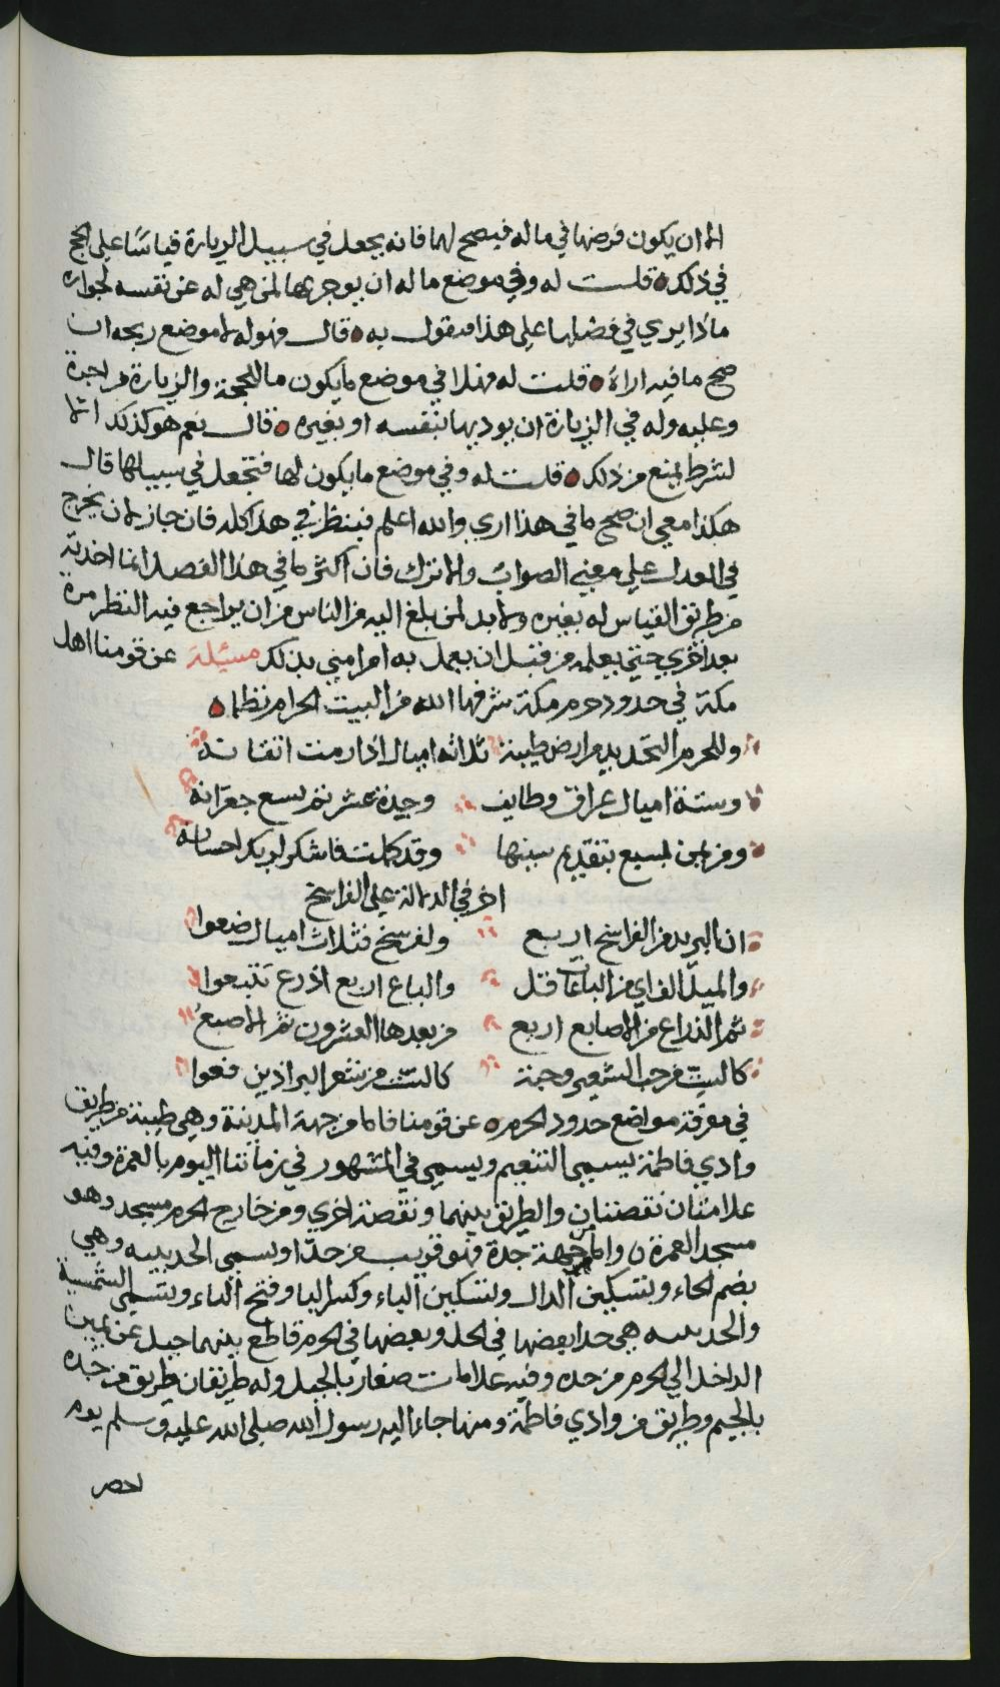 الا ان يكون فرضها في ماله فيصح لها فانه يجعل في سبيل الزيارة قياسًا على الحج
في ذلك قلت له وفي موضع ما له ان يوجر بها لمن هي له عن نفسه لجوازه
ماذا يري في فضلها على هذا فنقول به قال فهو له لا موضع ربحه ان
صح ما فيه اراه قلت له فهلا في موضع ما يكون مال الحجة والزيارة من اجرة
وعليه وله في الزيارة ان يوديها بنفسه او بغيره قال نعم هو كذلك الا
لشرط يمنع من ذلك قلت له وفي موضع ما يكون لها فتجعل في سبيلها قال
هكذا معي ان صح ما في هذا اري والله اعلم فينظر في هذا كله فان جاز لان يخرج
في العدل على معني الصواب والا ترك فان اكثر ما في هذا الفصل انما اخذته
من طريق القياس له بغيره ولا بد لمن بلغ اليه من الناس من ان يراجع فيه النظر مرة
بعد اخري حتي يعلمه من قبل ان يعمل به امرا مني بذلك مسئلة عن قومنا اهل
مكة في حدود حرم مكة شرفها الله من البيت الحرام نظما
وللحرم التحديد من ارض طيبة ثلاثة اميال اذا رمت اتقانه
وستة اميال عراق وطايف وجدة عشر ثم تسع جعرانة
ومن يمن لسبع بتقديم سينها وقد كملت فاشكر لربك احسانه
اخر في الدلالة على الفراسخ
ان البريد من الفراسخ اربع ولفرسخ فثلاث اميال ضعوا
والميل الف اي من الباعات قل والباع اربع اذرع تتبعوا
ثم الذراع من الاصابع اربع من بعدها العشرون ثم الاصبع
كالست من حب الشعير وحبة كالست من شعر البراذين فعوا
في معرفة مواضع حدود الحرم عن قومنا فاما من جهة المدينة وهي طيبة من طريق
وادي فاطمة يسمى التنعيم ويسمى في المشهور في زماننا اليوم بالعمرة وفيه
علامتان نقصتان والطريق بينهما ونقصة اخري ومن خارج الحرم مسجد وهو
مسجد العمرة واما جهة جدة فهو قريب من حدا وتسمى الحديبيه وهي
بضم الحاء وتسكين الدال وتسكين الياء وكسر البا وفتح الياء وتسمى الشمسية
والحديبيه هي حد ابعضها في الحل وبعضها في الحرم قاطع بينهما جبل عن يمين
الداخل الي الحرم من حده وفيه علامات صغار بالجبل وله طريقان طريق من جده
بالجيم وطريق من وادي فاطمة ومنها جاء اليه رسول الله صلى الله عليه وسلم يوم